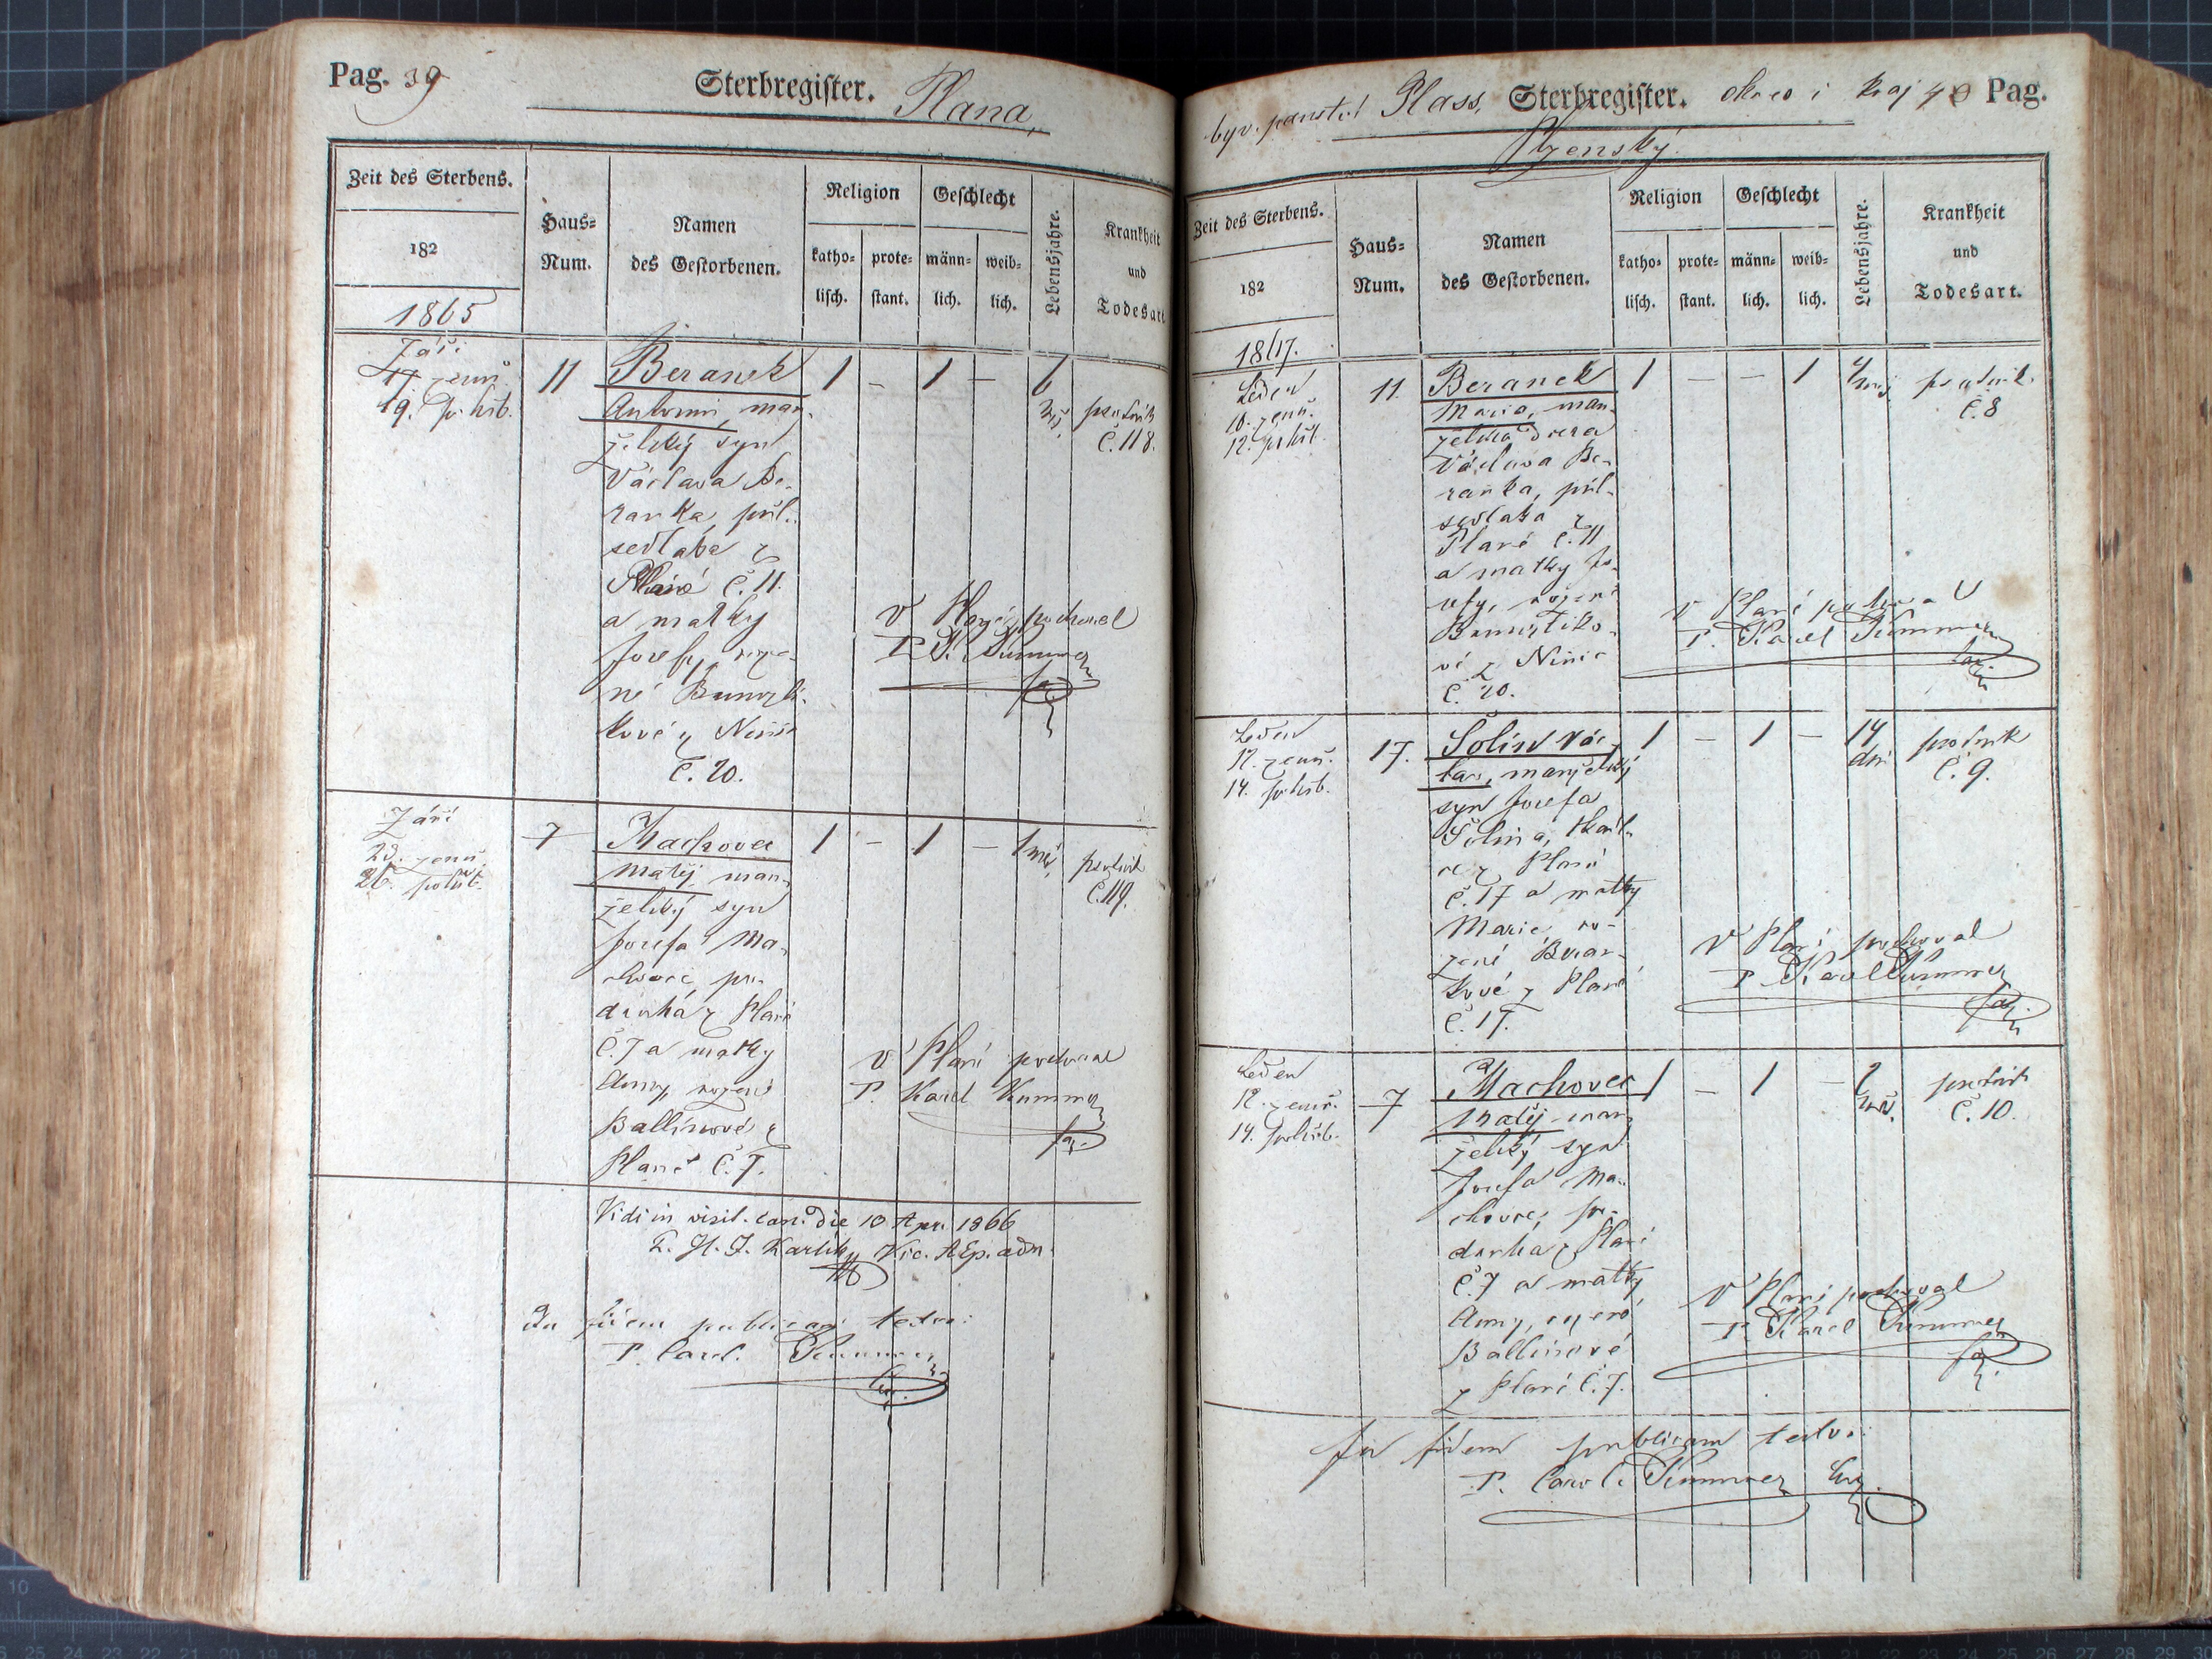 Pag. 39
Sterbregister. Plana,
Zeit des Sterbens.
182
1865
Haus-
Num.
Namen
des Gestorbenen.
Religion
katho-
lisch.
prote-
stant.
Geschlecht
männ-
lich.
weib-
lich.
Lebensjahre.
Krankheit
und
Todesart
Září
17 zemř.
19. pohřb.
11
Beranek
Antonin, man-
želský syn
Václava Be-
ranka, půl-
sedláka z
Plané č. 11.
a matky
Josefy, roze-
né Bumrli-
kové z
č. 20.
1 – 1 – 6
psotník
č. 118.
V Plané pochoval
P. K. Kummer
Září
23. zemř.
26. pohřb.
7
Machovec
Matěj, man-
želský syn
Josefa Ma-
chovce, po-
druha z Plané
č. 7 a matky
Anny, rozené
Ballínové z
Plané č. 7.
1 – 1 – 1 měs.
psotník
č. 119.
V Plané pochoval
P. Karel Kummer
far.
Vidi in visit. can. die 10 Apr. 1866
P. H. J. Karlik, Vic. AEp. adm.
In fidem publicam testor:
P. Carol. Kummer
Pag. 40
byv. panství Plass, Sterbregister. okres i kraj
Plzenský.
Zeit des Sterbens.
182
1867.
Haus-
Num.
Namen
des Gestorbenen.
Religion
katho-
lisch.
prote-
stant.
Geschlecht
männ-
lich.
weib-
lich.
Lebensjahre.
Krankheit
und
Todesart.
Leden
10. zemř.
12. pohřb.
11.
Beranek
Maria, man-
želská dcera
Václava Be-
ranka, půl-
sedláka z
Plané č. 11
a matky Jo-
sefy, rozené
Bumrliko-
vé z
č. 20.
1 – – 1
psotník
č. 8
V Plané pochoval
P. Karel Kummer
far.
Leden
12. zemř.
14. pohřb.
17.
Šolin Vác-
lav, manželský
syn Josefa
Šolina,
z Plané
č. 17 a matky
Marie, ro-
zené Beran-
kové z Plané
č. 17.
1 – 1 – 14
dní
psotník
č. 9.
V Plané pochoval
P. Karel Kummer
far.
Leden
12. zemř.
14. pohřb.
7
Machovec
Matěj man-
želský syn
Josefa Ma-
chovce, po-
druha z Plané
č. 7 a matky
Anny, rozené
Ballinové
z Plané č. 7.
1 – 1 –
psotník
č. 10.
V Plané pochoval
P. Karel Kummer
far.
In fidem publicam testor:
P. Carol. Kummer